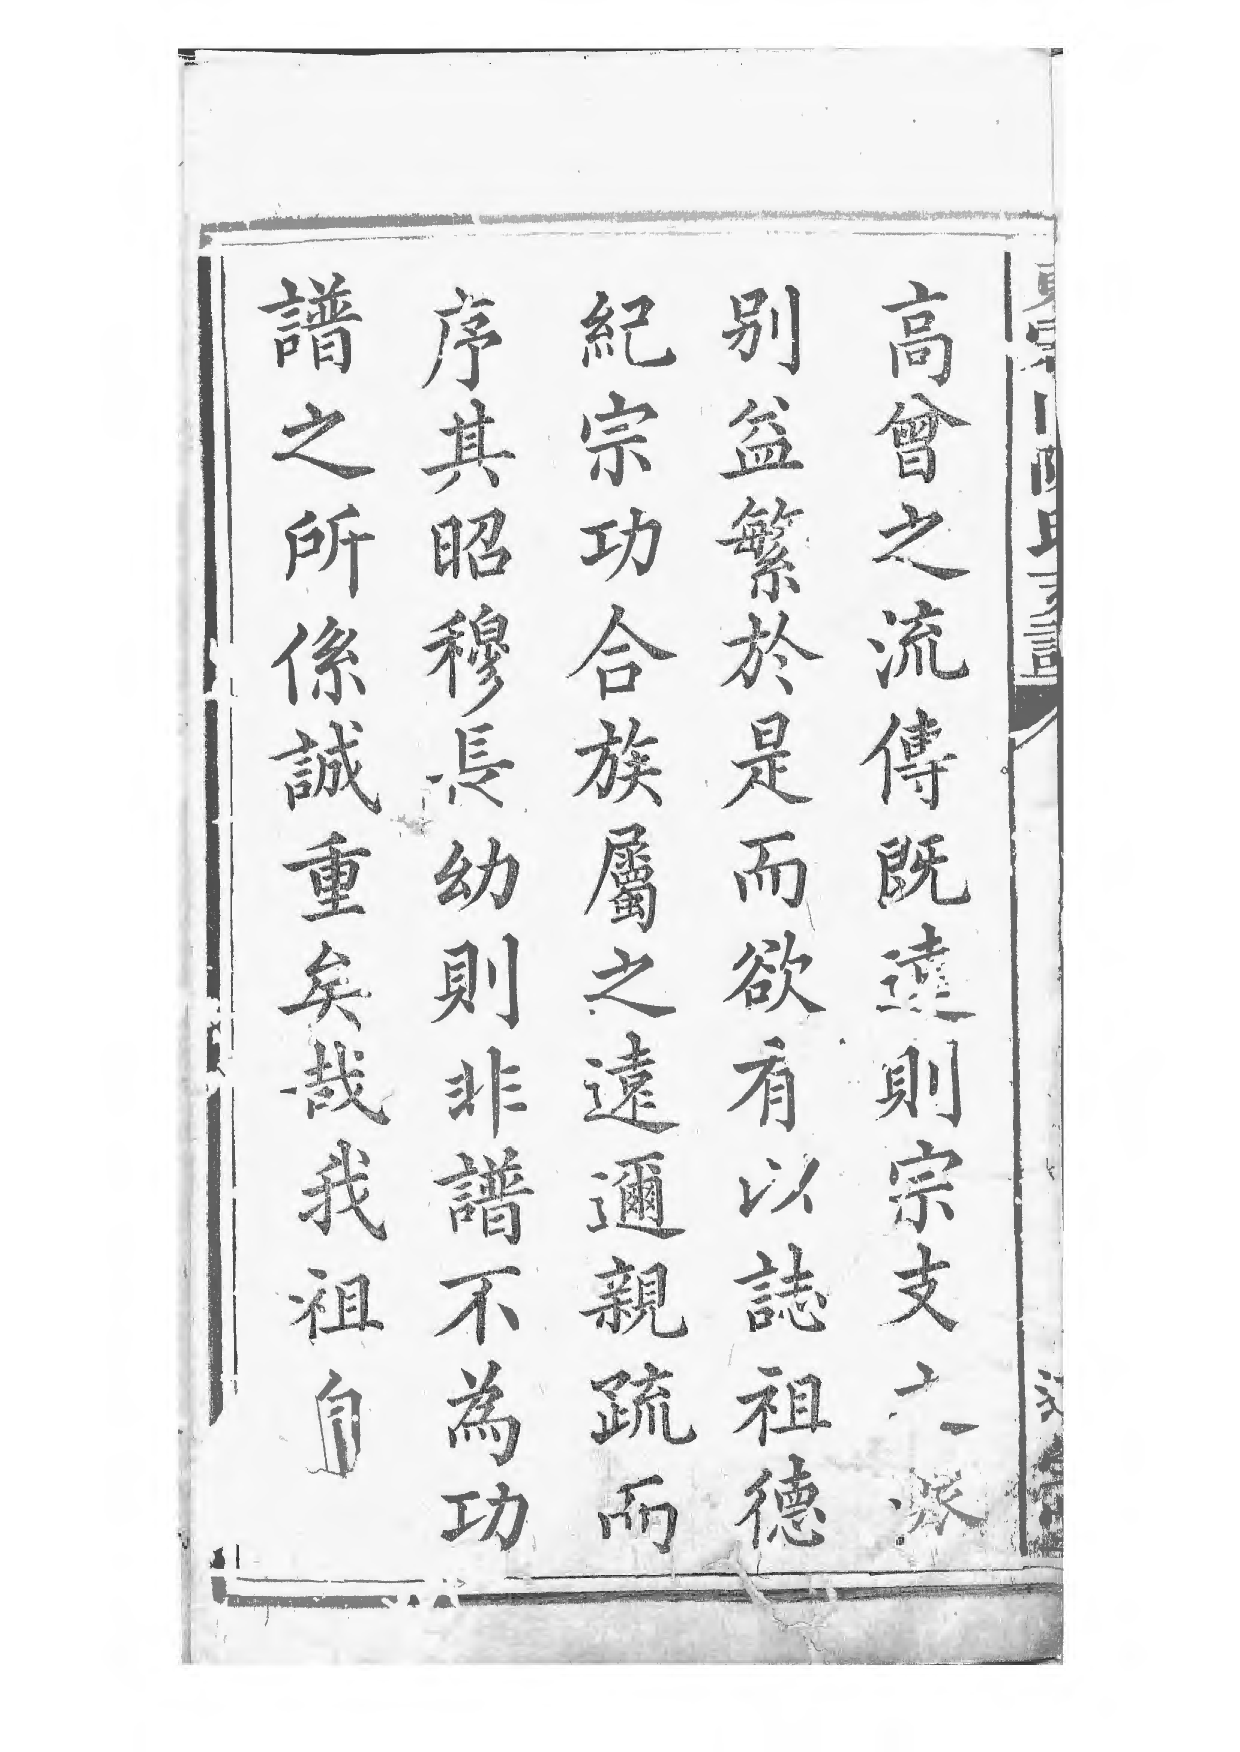 高曾之流傳既遠則宗支之
別益繁於是而欲有以誌祖德
紀宗功合族屬之遠邇親疏而
序其昭穆長幼則非譜不為功
譜之所係誠重矣哉我祖自